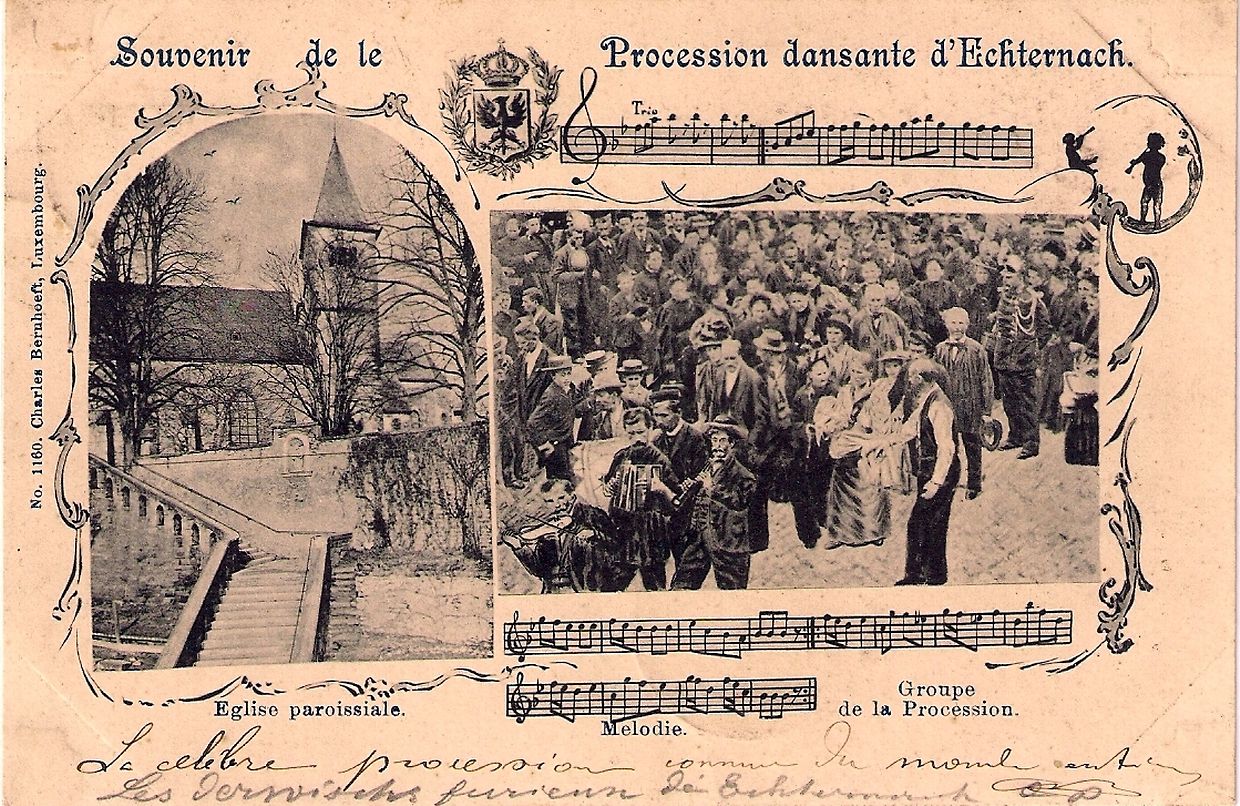 Souvenir de le Procession dansante d'Echternach.
Trio
No. 1160. Charles Bernhoeft, Luxembourg.
Eglise paroissiale.
Melodie.
Groupe
de la Procession.
La célèbre procession connue du monde entier
Les derwischs furieux de Echternach